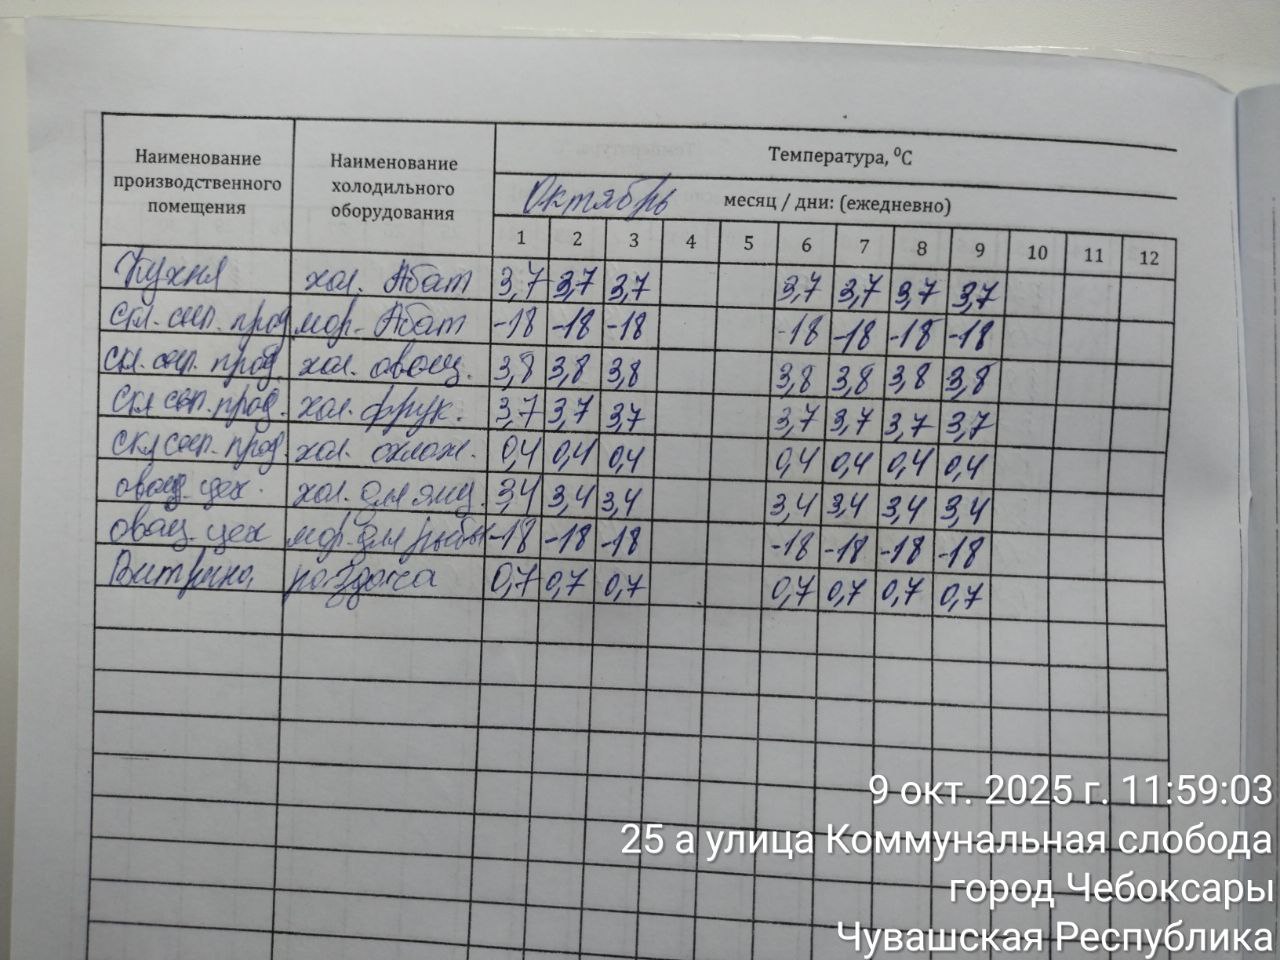 Наименование производственного помещения | Наименование холодильного оборудования | Температура, ⁰С
Октябрь месяц / дни: (ежедневно)
1 2 3 4 5 6 7 8 9 10 11 12
Кухня хол. Абат 3,7 3,7 3,7 3,7 3,7 3,7 3,7
скл. сып. прод мор. Абат -18 -18 -18 -18 -18 -18 -18
скл. сып. прод. хол. овощ. 3,8 3,8 3,8 3,8 3,8 3,8 3,8
скл сып. прод. хол. фрук. 3,7 3,7 3,7 3,7 3,7 3,7 3,7
скл сып. прод. хол. охлаж. 0,4 0,4 0,4 0,4 0,4 0,4 0,4
овощ. цех. хол. для яиц. 3,4 3,4 3,4 3,4 3,4 3,4 3,4
овощ. цех мор. для рыбы -18 -18 -18 -18 -18 -18 -18
Витрина раздача 0,7 0,7 0,7 0,7 0,7 0,7 0,7
9 окт. 2025 г. 11:59:03
25 а улица Коммунальная слобода
город Чебоксары
Чувашская Республика